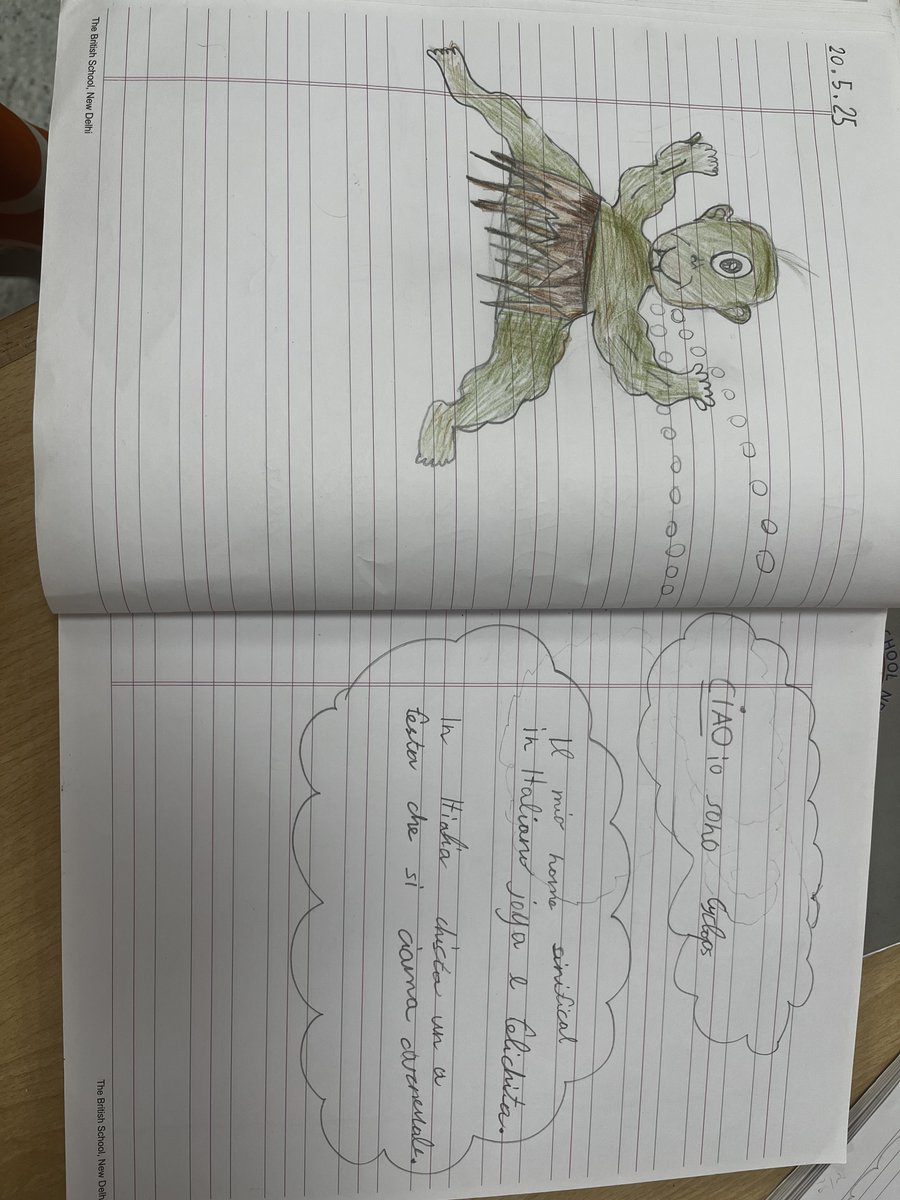 20.5.25
CIAO io sono Cyclops
Il mio home sinifical
in Italiano joya e felichita.
In Itialia chicca un a
festa che si ciama
The British School, New Delhi
The British School, New Delhi